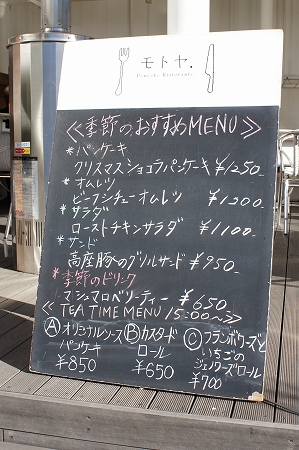 モトヤ.
Pancake Ristorante
≪季節のおすすめMENU≫
*パンケーキ
クリスマスショコラパンケーキ ¥1250-
*オムレツ
ビーフシチューオムレツ ¥1200-
*サラダ
ローストチキンサラダ ¥1100-
*サンド
高座豚のグリルサンド ¥950-
*季節のドリンク
マシュマロベリーティー ¥650
≪TEA TIME MENU 15:00〜≫
Ⓐオリジナルソース パンケーキ ¥850
Ⓑカスタード ロール ¥650
Ⓒフランボワーズと いちごの ジェノワーズロール ¥700